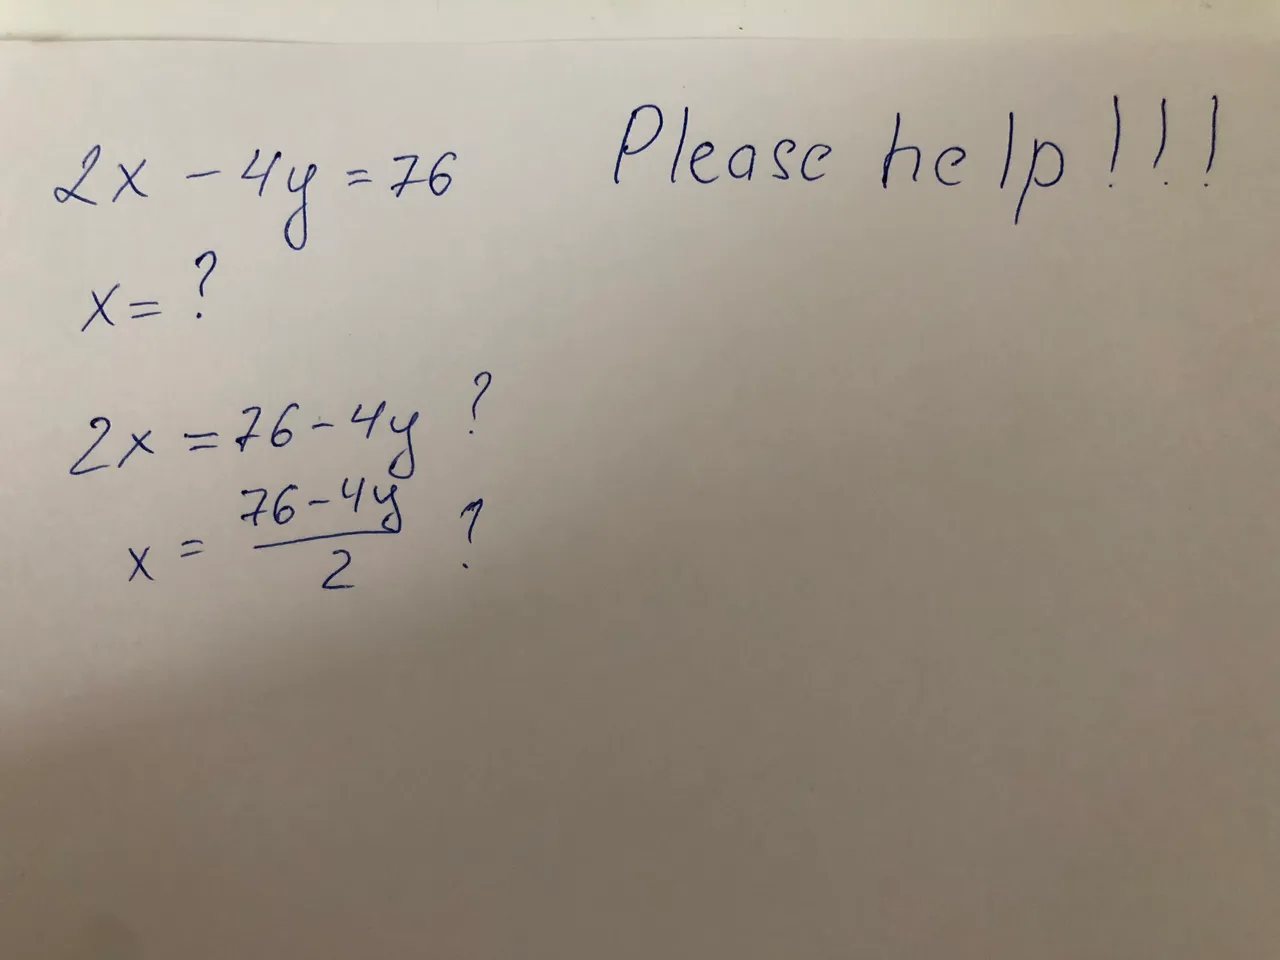 2x - 4y = 76
Please help!!!
x = ?
2x = 76 - 4y ?
x = \frac{76 - 4y}{2} ?